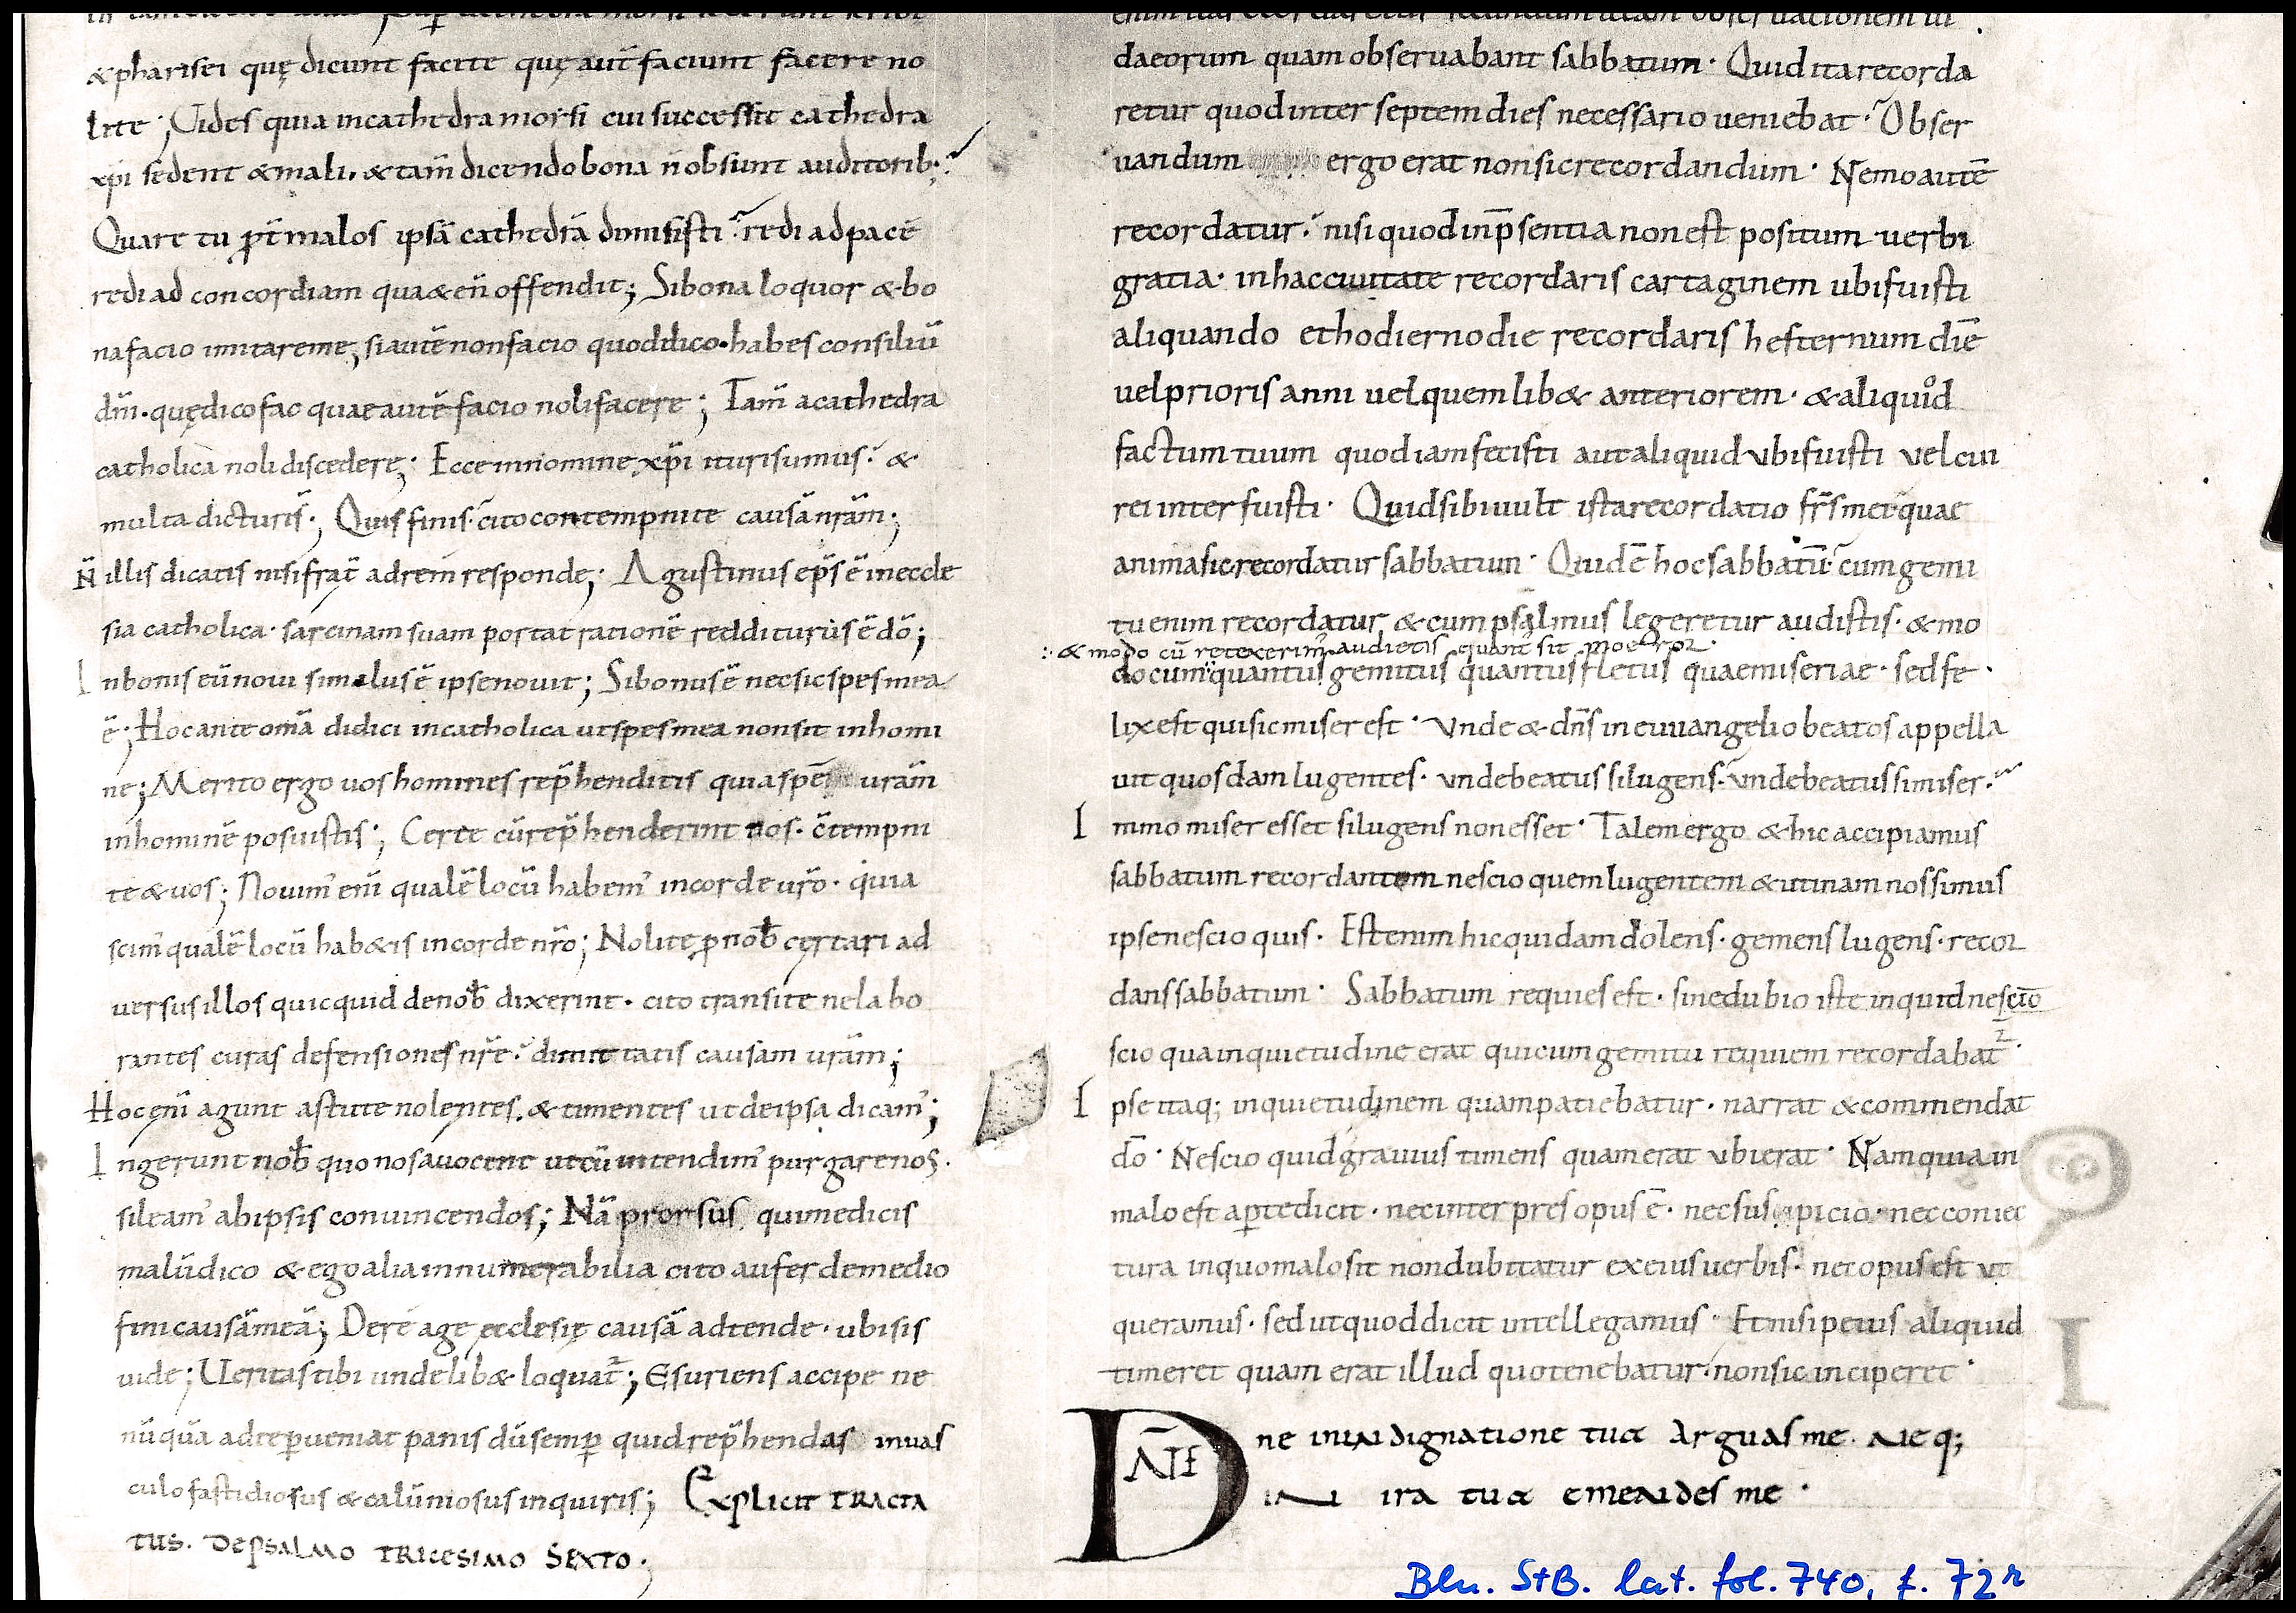 & pharisei quę dicunt facite quę aut̄ faciunt facere no
lite; Uides quia incathedra morsi cui successit cathedra
xp̄i sedent & mali. & tam̄ dicendo bona n̄ obsunt auditorib·;
Quare tu p̄t malos ipsā cathedrā dimisisti redi ad pacē
redi ad concordiam quae ten̄ offendit; Si bona loquor & bo
na facio imitare me; si autē non facio quod dico· habes consiliū
dn̄i· quę dico fac quae autē facio noli facere; Tam̄ a cathedra
catholica noli discedere; Ecce in nomine xp̄i ituri sumus· &
multa dicturis̄; Quis finis· cito contempnite causā nrām̄;
N̄ illis dicatis nisi frat̄ ad rem responde; Agustinus ep̄s ē in eccle
sia catholica· sarcinam suam portat rationē redditurus ē dō;
In bonis eū noui si malus ē ipse nouit; Si bonus ē nec sic spes mea
ē; Hoc ante omā didici in catholica ut spes mea non sit in homi
ne; Merito ergo uos homines rep̄henditis quia spē urām̄
in hominē posuistis; Certe cū rep̄henderint nos· c̄tempni
te & uos; Nouim' enī qualē locū habem' in corde urō· quia
scim' qualē locū habetis in corde nrō; Nolite p̱ nob̄ certari ad
uersus illos quicquid de nob̄ dixerint· cito transite ne labo
rantes curas defensiones nr̄e· dimittatis causam urām̄;
Hoc enī agunt astute nolentes· & timentes ut de ipsa dicam';
Ingerunt nob̄ quo nos auocent ut cū intendim' purgare nos·
sileam' ab ipsis conuincendos; Nā prorsus, qui me dicis
malū dico & ego alia innumerabilia cito aufer de medio
fini causā meā; De re age ecclesię causā adtende· ubi sis
uide; Ueritas tibi unde libet loquat'; Esuriens accipe ne
nūquā ad te p̱ueniat panis dū semp̱ quid rep̄hendas in uas
culo fastidiosus & calūniosus inquiris; Explicit tracta
tus. de psalmo tricesimo sexto·
daeorum quam obseruabant sabbatum· Quid ita recorda
retur quod inter septem dies necessario ueniebat· Obser
uandum ergo erat non sic recordandum· Nemo autē
recordatur· nisi quod in p̄sentia non est positum· uerbi
gratia· in hac ciuitate recordaris cartaginem ubi fuisti
aliquando et hodierno die recordaris hesternum diē
uel prioris anni uel quemlibet anteriorem· & aliquid
factum tuum quod iam fecisti aut aliquid ubi fuisti vel cui
rei interfuisti· Quid sibi uult ista recordatio fr̄s mei quae
anima sic recordatur sabbatum· Quid ē hoc sabbatū· cum gemi
tu enim recordatur, & cum psalmus legeretur audistis· & mo
& modo cū retexerim' audietis quant' sit moeror·
do cum quantus gemitus quantus fletus quae miseriae· sed fe
lix est qui sic miser est· Vnde & dn̄s in euuangelio beatos appella
uit quosdam lugentes· vnde beatus si lugens· vnde beatus si miser·
Immo miser esset si lugens non esset· Talem ergo & hic accipiamus
sabbatum recordantem nescio quem lugentem & utinam nos simus
ipse nescio quis· Est enim hic quidam dolens· gemens lugens· recor
dans sabbatum· Sabbatum requies est· sine dubio iste inquid nescio
scio qua inquietudine erat qui cum gemitu requiem recordabat'·
Ipse itaq; inquietudinem quam patiebatur· narrat & commendat
dō· Nescio quid grauius timens quam erat vbi erat· Nam quia in
malo est ap̱te dicit· nec interpres opus ē· nec suspicio· nec coniec
tura in quo malo sit non dubitatur ex eius uerbis· nec opus est vt
queramus· sed ut quod dicit intellegamus· Et nisi peius aliquid
timeret quam erat illud quo tenebatur· non sic inciperet·
DN̄E ne in indignatione tua Arguas me. Neq;
IN ira tua emendes me·
Bln. StB. lat. fol. 740, f. 72r